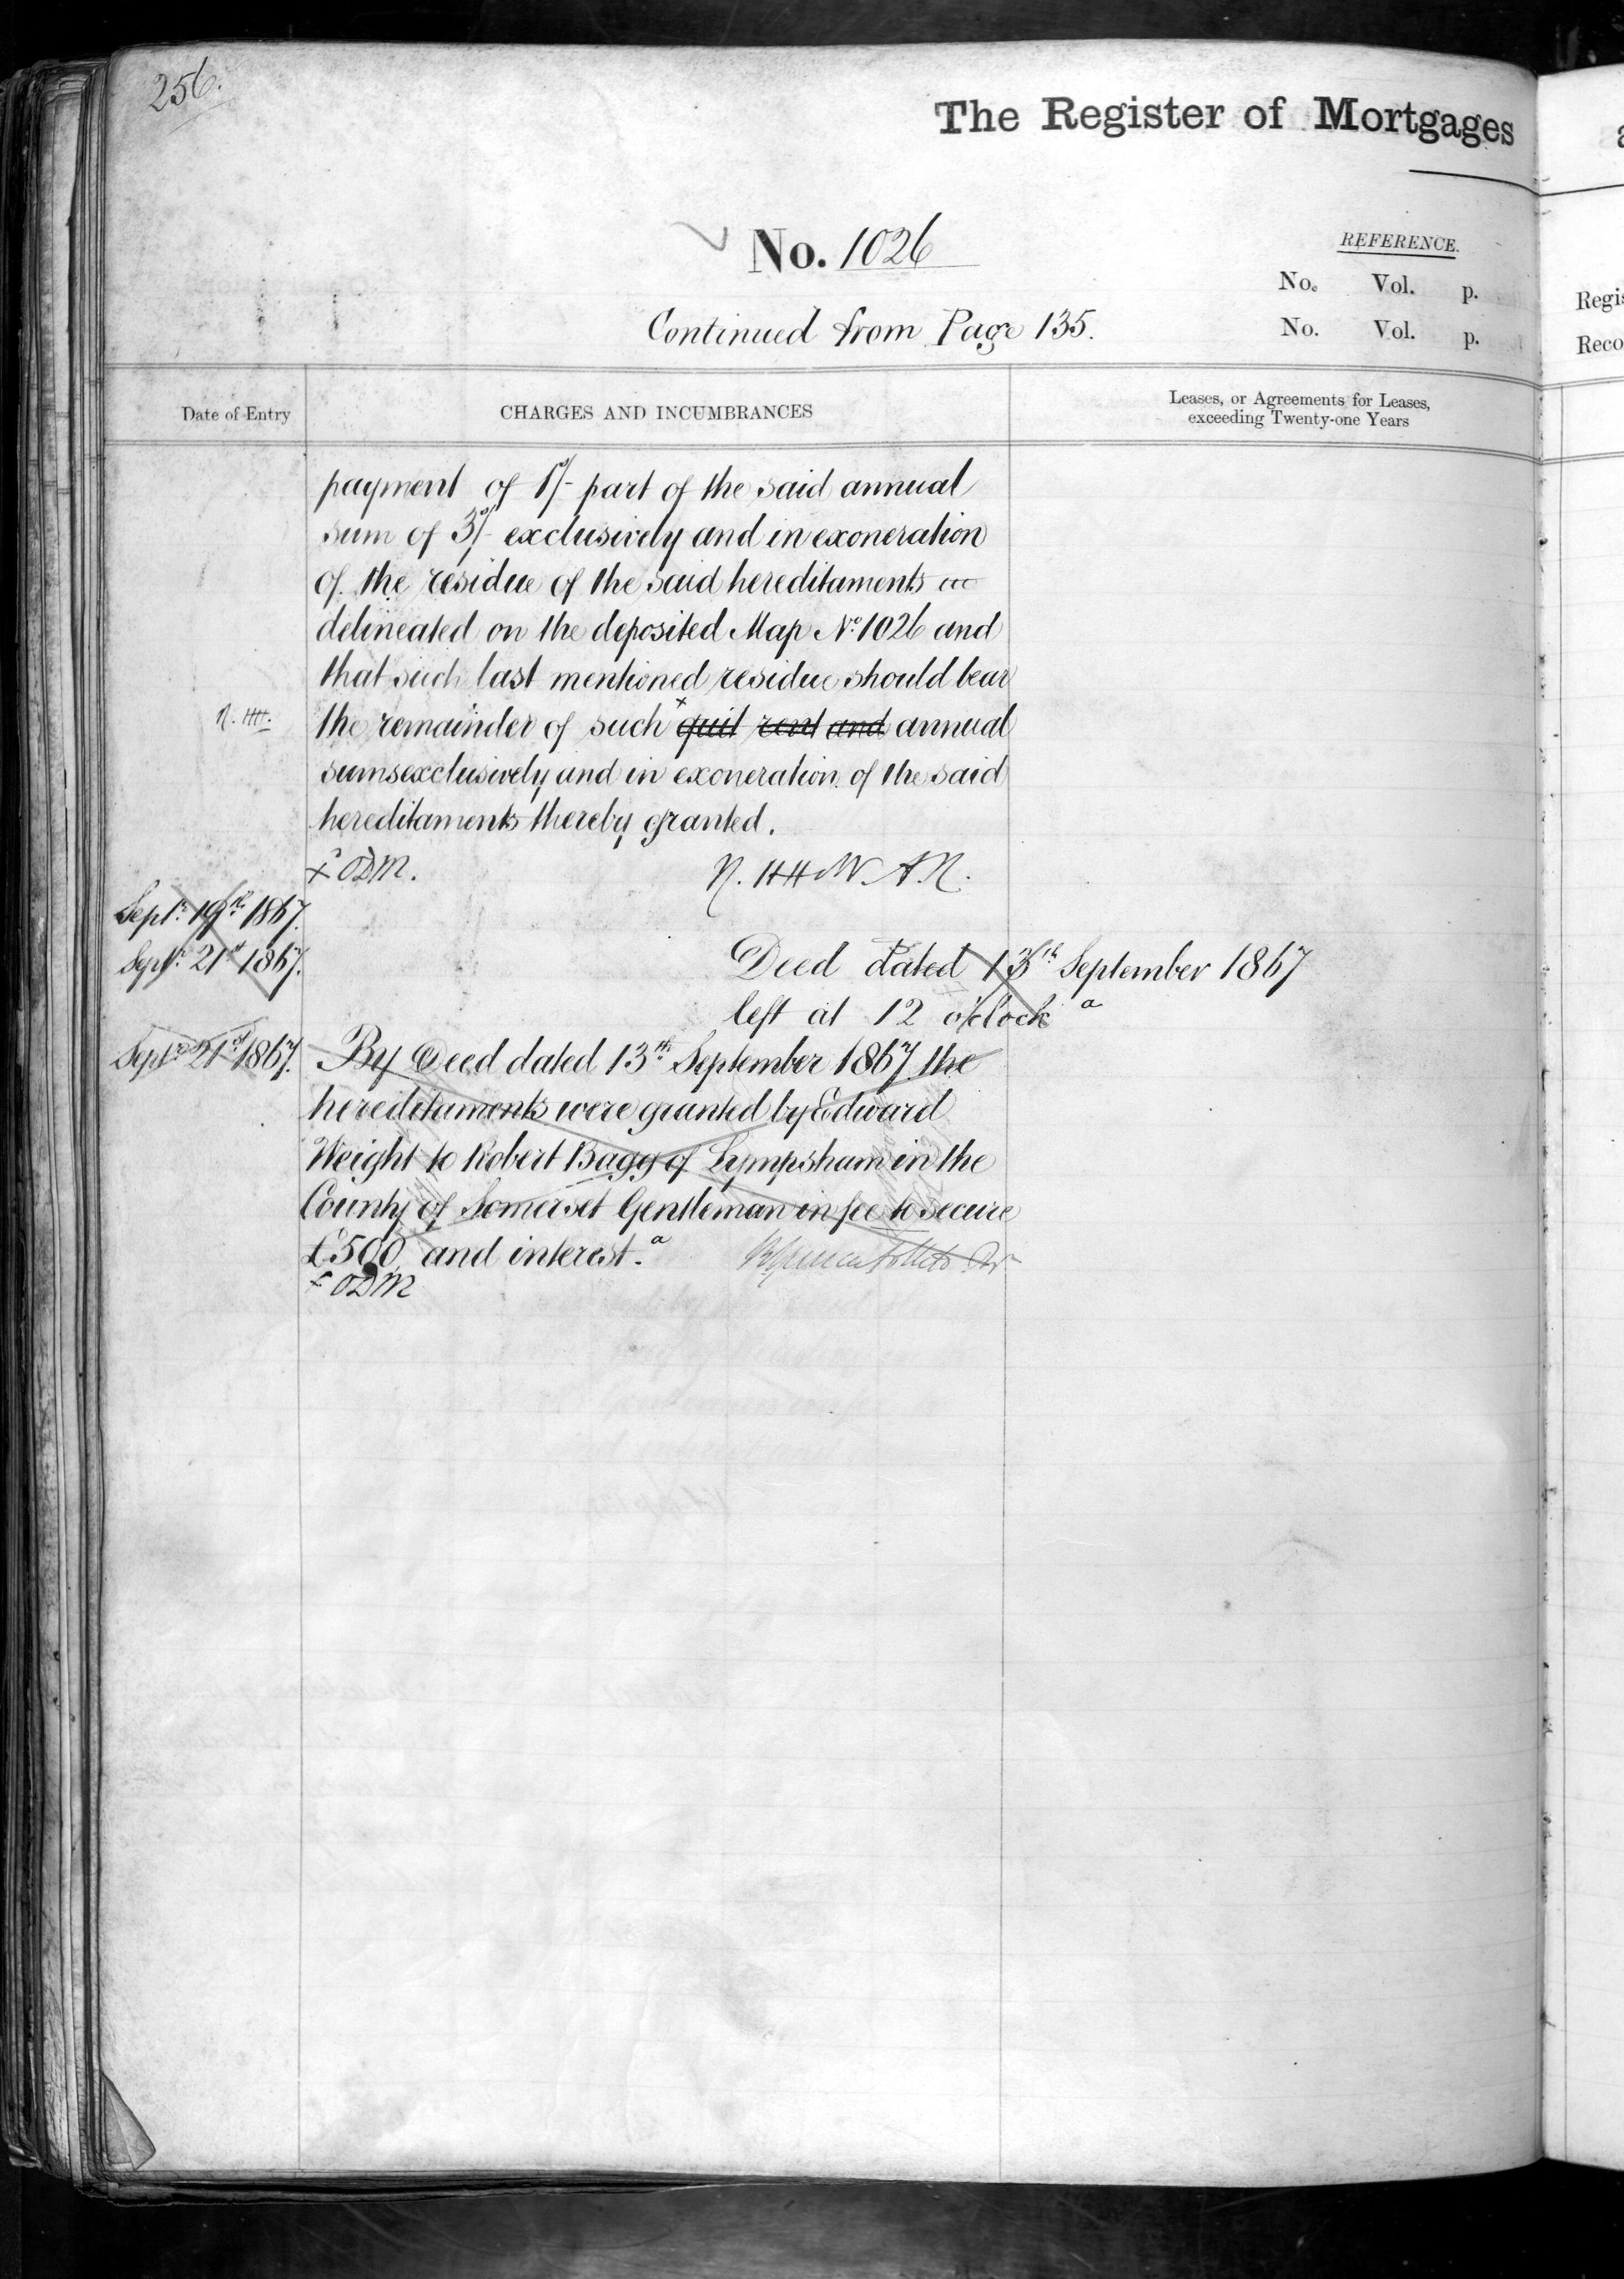 256.
The Register of Mortgages
No. 1026
REFERENCE.
No. Vol. p.
No. Vol. p.
Continued from Page 135.
Regis
Reco
Date of Entry
CHARGES AND INCUMBRANCES
Leases, or Agreements for Leases,
exceeding Twenty-one Years
payment of 1/- part of the said annual
sum of 3/- exclusively and in exoneration
of the residue of the said hereditaments
delineated on the deposited Map No. 1026 and
that such last mentioned residue should bear
the remainder of such quit rent and annual
sums exclusively and in exoneration of the said
hereditaments thereby granted.
x ODM.
Septr. 19th 1867.
Septr. 21st 1867.
Deed dated 13th September 1867
left at 12 o'clock a
Septr. 21st 1867.
By Deed dated 13th September 1867 the
hereditaments were granted by Edward
Weight to Robert Bagg of Lympsham in the
County of Somerset Gentleman in fee to secure
£500 and interest. a
x ODM